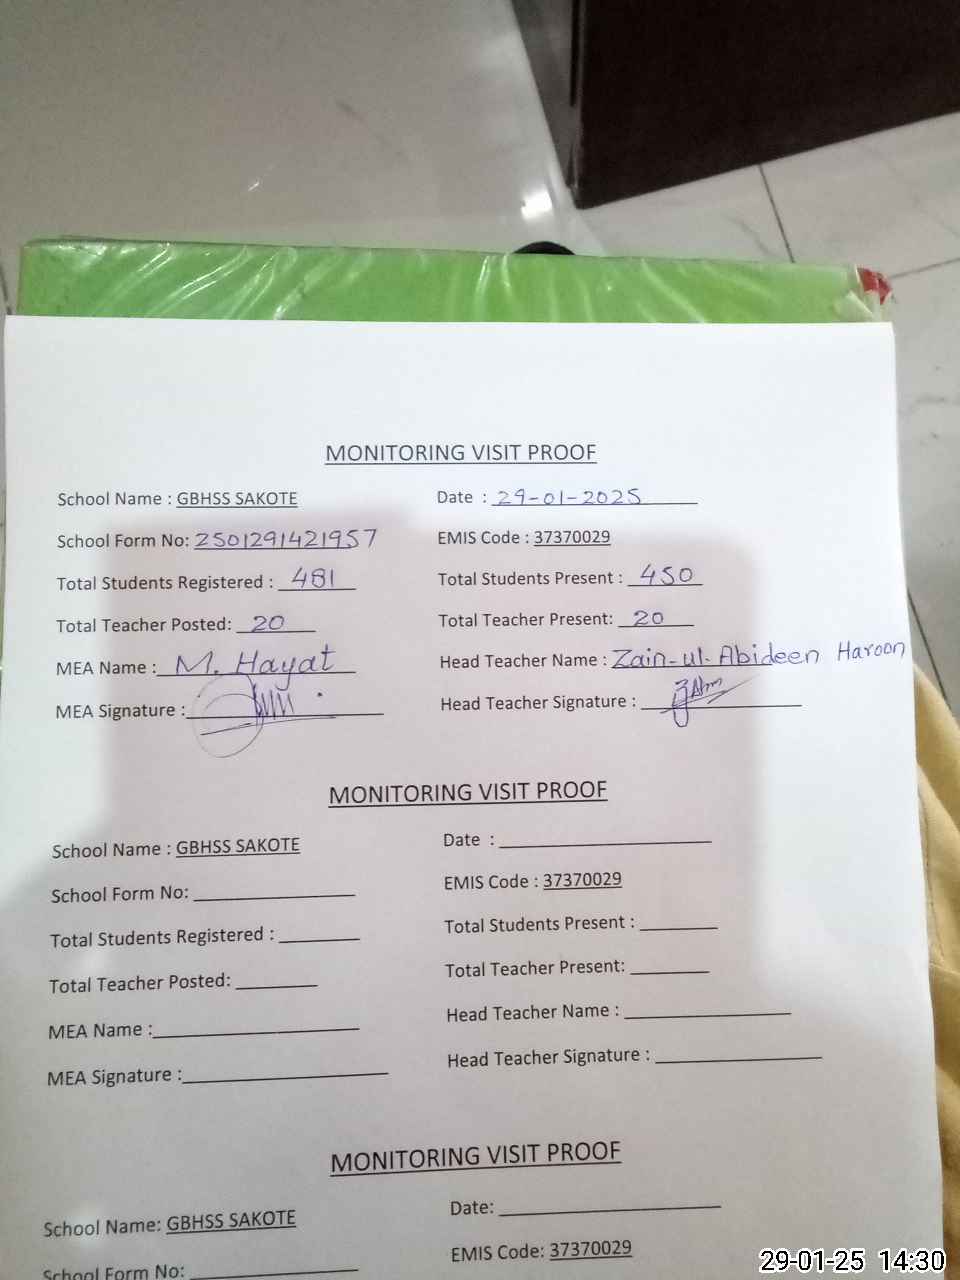 MONITORING VISIT PROOF
School Name : GBHSS SAKOTE Date : 29-01-2025
School Form No: 2501291421957 EMIS Code : 37370029
Total Students Registered : 481 Total Students Present : 450
Total Teacher Posted: 20 Total Teacher Present: 20
MEA Name : M. Hayat Head Teacher Name : Zain-ul-Abideen Haroon
MEA Signature : Head Teacher Signature :
MONITORING VISIT PROOF
School Name : GBHSS SAKOTE Date :
School Form No: EMIS Code : 37370029
Total Students Registered : Total Students Present :
Total Teacher Posted: Total Teacher Present:
MEA Name : Head Teacher Name :
MEA Signature : Head Teacher Signature :
MONITORING VISIT PROOF
School Name: GBHSS SAKOTE Date:
School Form No: EMIS Code: 37370029
29-01-25 14:30